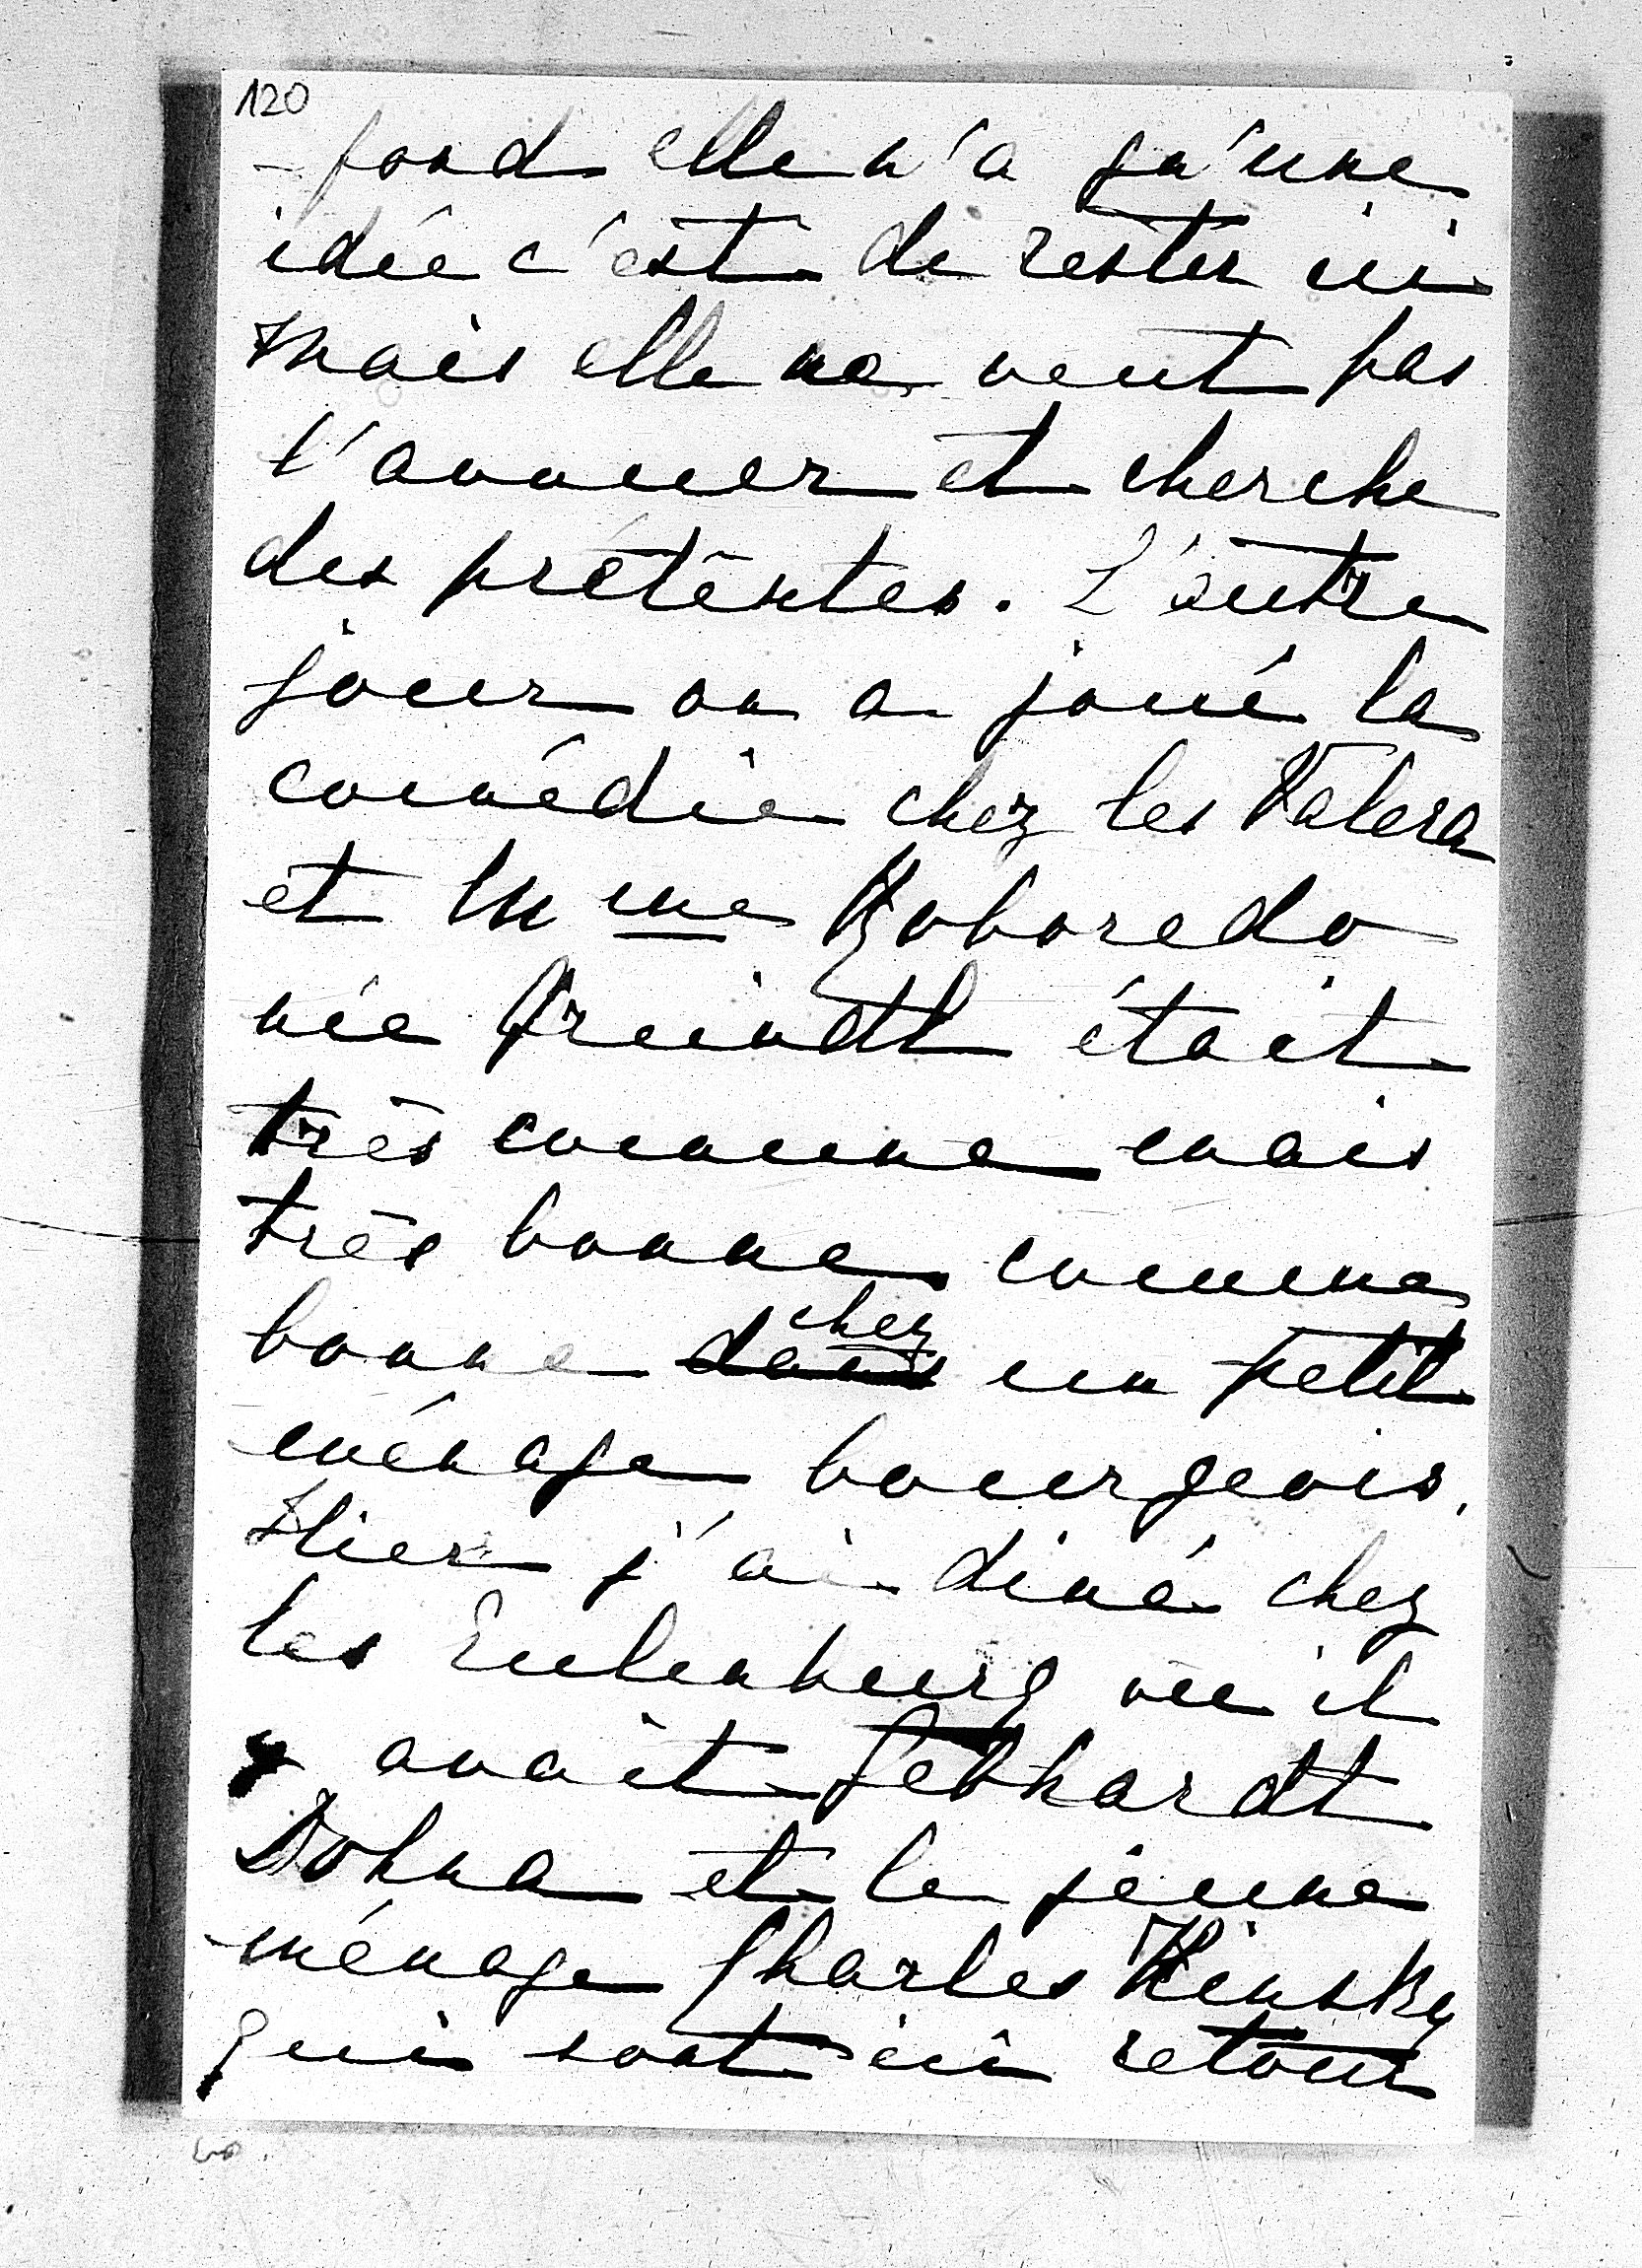 120
fond elle n'a qu'une
idée c'est de rester ici
mais elle ne veut pas
l'avouer et cherche
des prétextes. L'autre
jour on a joué la
comédie chez les Valera
et Mme Roboredo
née Greindl était
très comme mais
très bonne comme
bonne dans chez un petit
ménage bourgeois.
Hier j'ai diné chez
les Eulenburg où il
y avait Gebhardt
Dohna et le jeune
ménage Charles Kinsky
qui sont ici retour